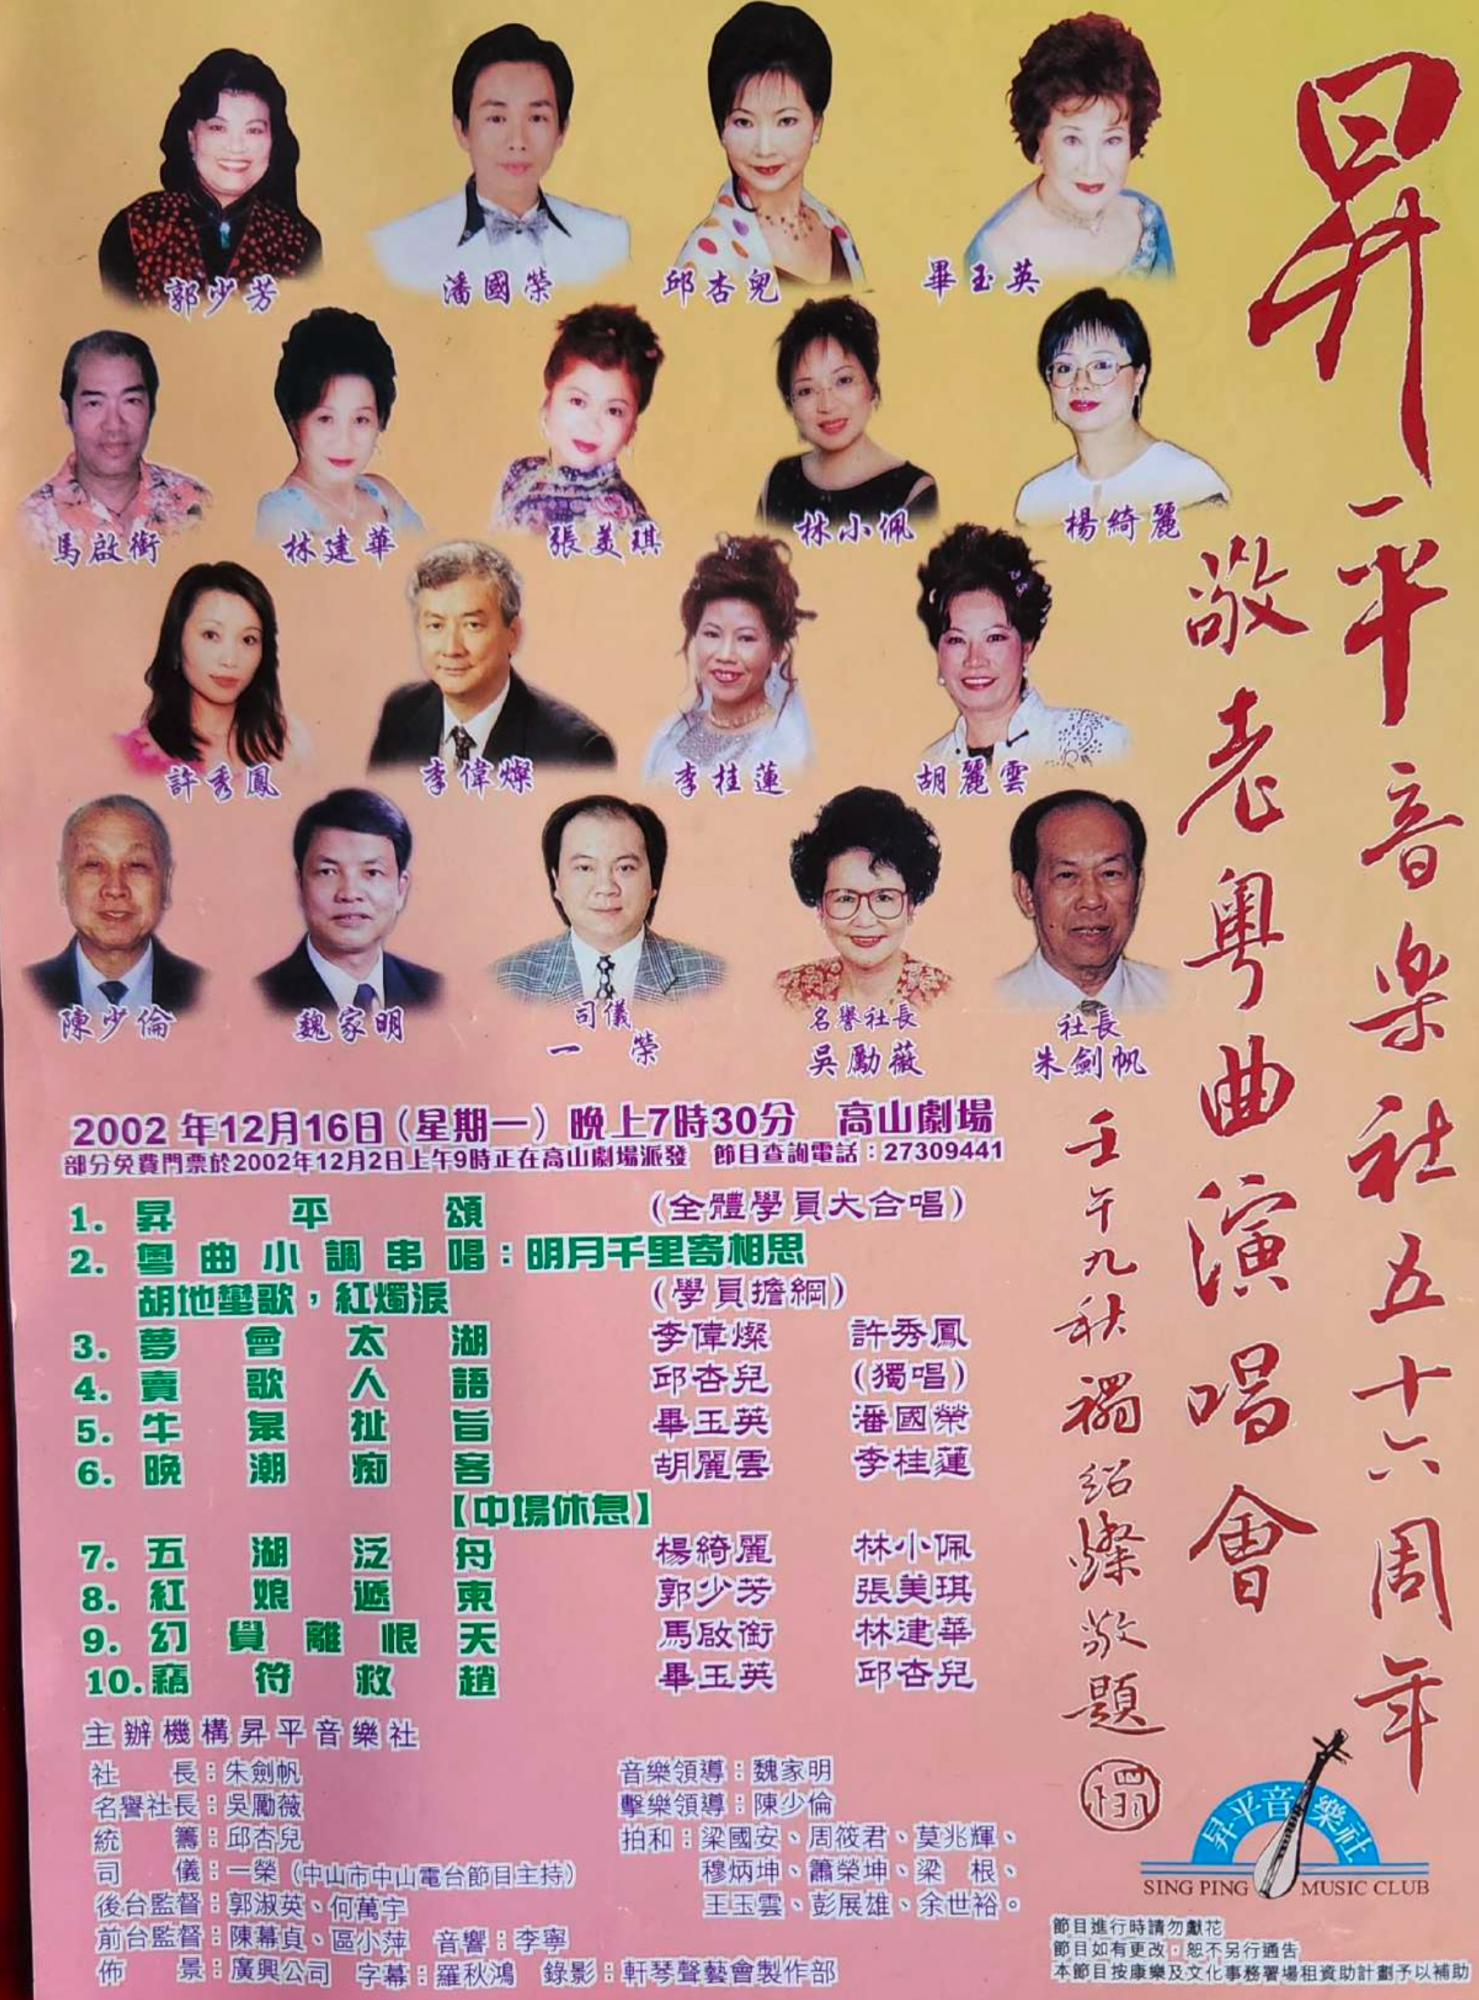 昇平音樂社五十六周年
敬老粵曲演唱會
壬午九秋禤紹燦敬題
郭少芳
潘國榮
邱杏兒
畢玉英
馬啟銜
林建華
張美琪
林小佩
楊綺麗
許秀鳳
李偉燦
李桂蓮
胡麗雲
陳少倫
魏家明
司儀
一榮
名譽社長
吳勵薇
社長
朱劍帆
2002年12月16日(星期一) 晚上7時30分 高山劇場
部分免費門票於2002年12月2日上午9時正在高山劇場派發 節目查詢電話：27309441
1. 昇平頌 (全體學員大合唱)
2. 粵曲小調串唱：明月千里寄相思
胡地蠻歌，紅燭淚 (學員擔綱)
3. 夢會太湖 李偉燦 許秀鳳
4. 賣歌人語 邱杏兒 (獨唱)
5. 牛皋扯旨 畢玉英 潘國榮
6. 晚潮痴客 胡麗雲 李桂蓮
【中場休息】
7. 五湖泛舟 楊綺麗 林小佩
8. 紅娘遞柬 郭少芳 張美琪
9. 幻覺離恨天 馬啟銜 林建華
10. 竊符救趙 畢玉英 邱杏兒
主辦機構昇平音樂社
社長：朱劍帆
名譽社長：吳勵薇
統籌：邱杏兒
司儀：一榮 (中山市中山電台節目主持)
後台監督：郭淑英、何萬宇
前台監督：陳慕貞、區小萍 音響：李寧
佈景：廣興公司 字幕：羅秋鴻 錄影：軒琴聲藝會製作部
音樂領導：魏家明
擊樂領導：陳少倫
拍和：梁國安、周筱君、莫兆輝、
穆炳坤、蕭榮坤、梁 根、
王玉雲、彭展雄、余世裕。
昇平音樂社
SING PING MUSIC CLUB
節目進行時請勿獻花
節目如有更改，恕不另行通告
本節目按康樂及文化事務署場租資助計劃予以補助